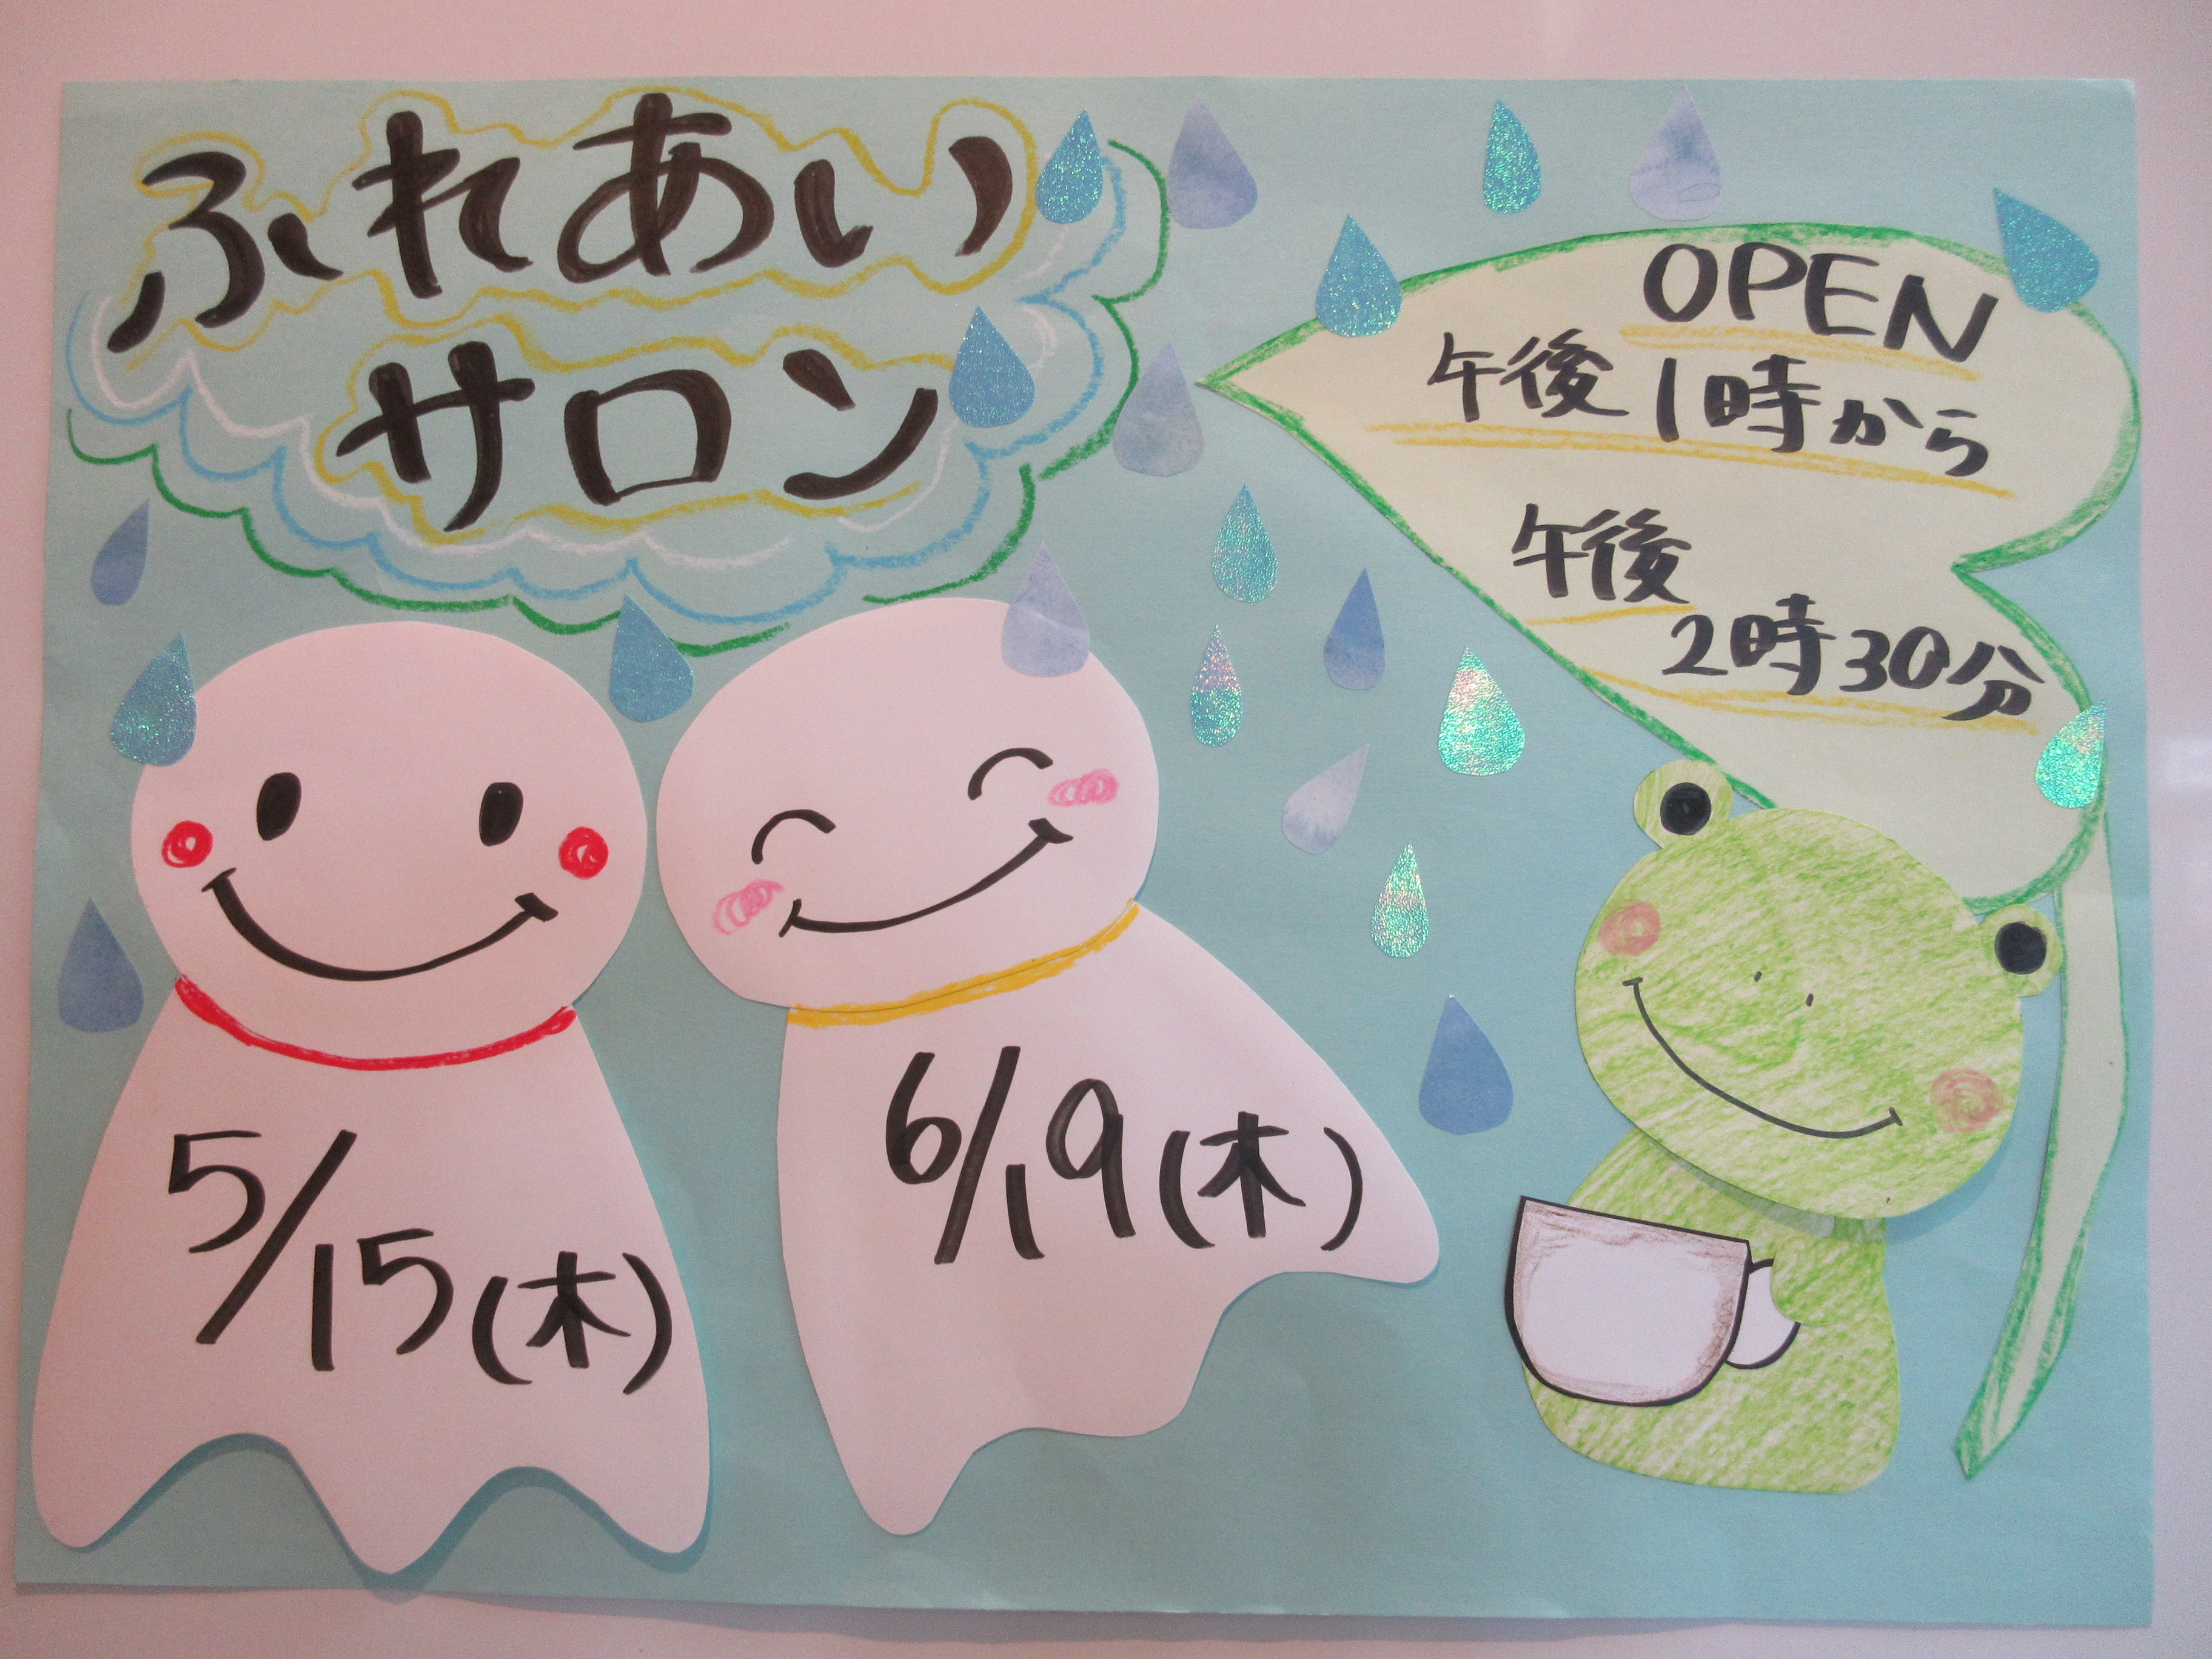 ふれあい
サロン
OPEN
午後1時から
午後
2時30分
5/15(木)
6/19(木)